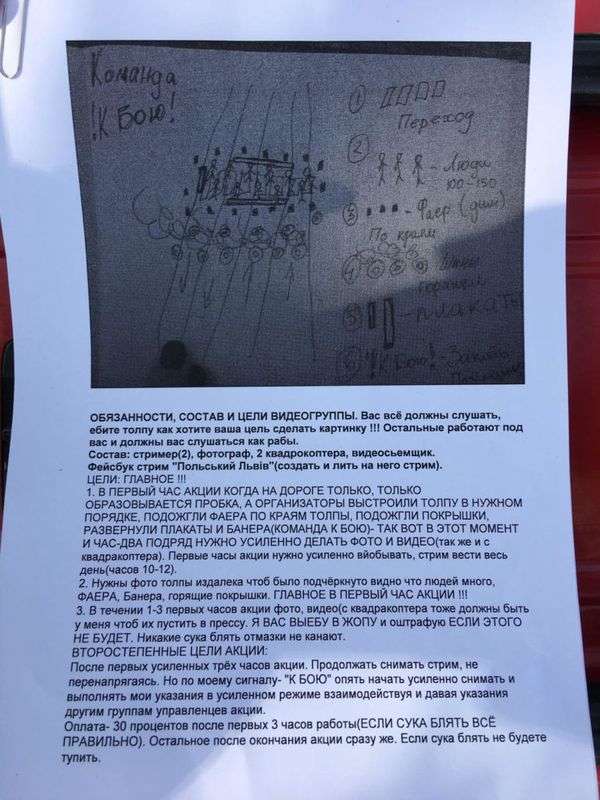 Команда
!К Бою!
① Переход
② - Люди
100-150
③ - Фаер (дым)
По краям
④
⑤ - плакаты
⑥ "К Бою!" -
ОБЯЗАННОСТИ, СОСТАВ И ЦЕЛИ ВИДЕОГРУППЫ. Вас всё должны слушать,
ебите толпу как хотите ваша цель сделать картинку !!! Остальные работают под
вас и должны вас слушаться как рабы.
Состав: стример(2), фотограф, 2 квадрокоптера, видеосьемщик.
Фейсбук стрим "Польський Львів"(создать и лить на него стрим).
ЦЕЛИ: ГЛАВНОЕ !!!
1. В ПЕРВЫЙ ЧАС АКЦИИ КОГДА НА ДОРОГЕ ТОЛЬКО, ТОЛЬКО
ОБРАЗОВЫВАЕТСЯ ПРОБКА, А ОРГАНИЗАТОРЫ ВЫСТРОИЛИ ТОЛПУ В НУЖНОМ
ПОРЯДКЕ, ПОДОЖГЛИ ФАЕРА ПО КРАЯМ ТОЛПЫ, ПОДОЖГЛИ ПОКРЫШКИ,
РАЗВЕРНУЛИ ПЛАКАТЫ И БАНЕРА(КОМАНДА К БОЮ)- ТАК ВОТ В ЭТОТ МОМЕНТ
И ЧАС-ДВА ПОДРЯД НУЖНО УСИЛЕННО ДЕЛАТЬ ФОТО И ВИДЕО(так же и с
квадракоптера). Первые часы акции нужно усиленно вйобывать, стрим вести весь
день(часов 10-12).
2. Нужны фото толпы издалека чтоб было подчёркнуто видно что людей много,
ФАЕРА, Банера, горящие покрышки. ГЛАВНОЕ В ПЕРВЫЙ ЧАС АКЦИИ !!!
3. В течении 1-3 первых часов акции фото, видео(с квадракоптера тоже должны быть
у меня чтоб их пустить в прессу. Я ВАС ВЫЕБУ В ЖОПУ и оштрафую ЕСЛИ ЭТОГО
НЕ БУДЕТ. Никакие сука блять отмазки не канают.
ВТОРОСТЕПЕННЫЕ ЦЕЛИ АКЦИИ:
После первых усиленных трёх часов акции. Продолжать снимать стрим, не
перенапрягаясь. Но по моему сигналу- "К БОЮ" опять начать усиленно снимать и
выполнять мои указания в усиленном режиме взаимодействуя и давая указания
другим группам управленцев акции.
Оплата- 30 процентов после первых 3 часов работы(ЕСЛИ СУКА БЛЯТЬ ВСЁ
ПРАВИЛЬНО). Остальное после окончания акции сразу же. Если сука блять не будете
тупить.